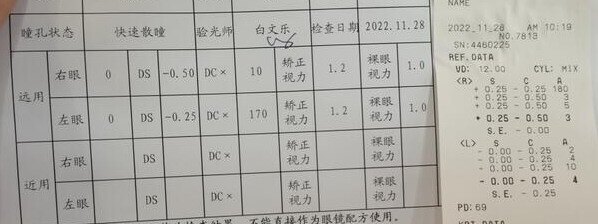 瞳孔状态 快速散瞳 验光师 白文乐 检查日期 2022.11.28
远用 右眼 0 DS -0.50 DC× 10 矫正视力 1.2 裸眼视力 1.0
左眼 0 DS -0.25 DC× 170 矫正视力 1.2 裸眼视力 1.0
近用 右眼 DS DC× 矫正视力 裸眼视力
左眼 DS DC× 矫正视力 裸眼视力
不能直接作为眼镜配方使用。
NAME
2022_11_28 AM 10:19
NO.7813
SN:4460225
REF.DATA
VD: 12.00 CYL: MIX
<R> S C A
+ 0.25 - 0.25 180
+ 0.25 - 0.50 3
+ 0.25 - 0.50 5
* 0.25 - 0.50 3
S.E. - 0.00
<L> S C A
- 0.00 - 0.25 2
- 0.00 - 0.25 4
- 0.00 - 0.25 10
- 0.00 - 0.25 4
S.E. - 0.25
PD: 69
KRT.DATA